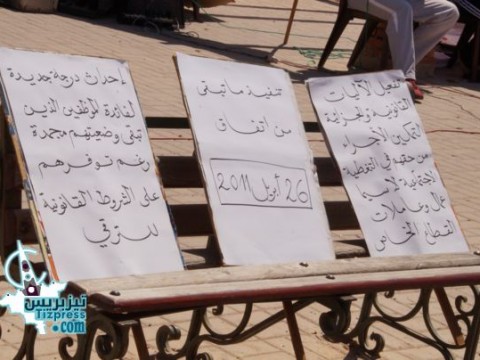 إحداث درجة جديدة
لفائدة الموظفين الذين
تبقى وضعيتهم مجمدة
رغم توفرهم
على الشروط القانونية
للترقي
تنفيذ ما تبقى
من اتفاق
26 أبريل 2011
تفعيل الآليات
القانونية والجزائية
لتمكين الأجراء
من حقهم في التغطية
الاجتماعية لاسيما
عمال وعاملات
القطاع الخاص
تيزبريس
Tizpress
.com